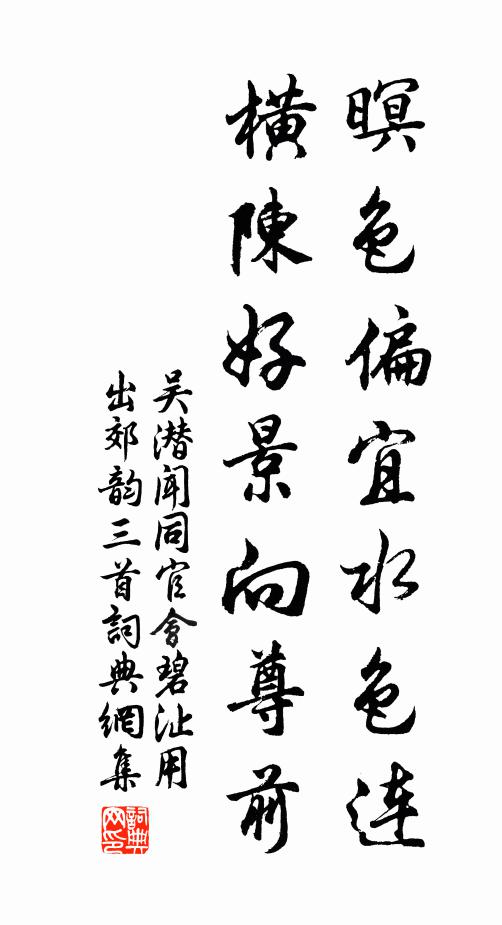 暝色偏宜水色连
横陳好景向尊前
吴潜闻同官會碧沚用
出郊韵三首詞典網集
詞典网印